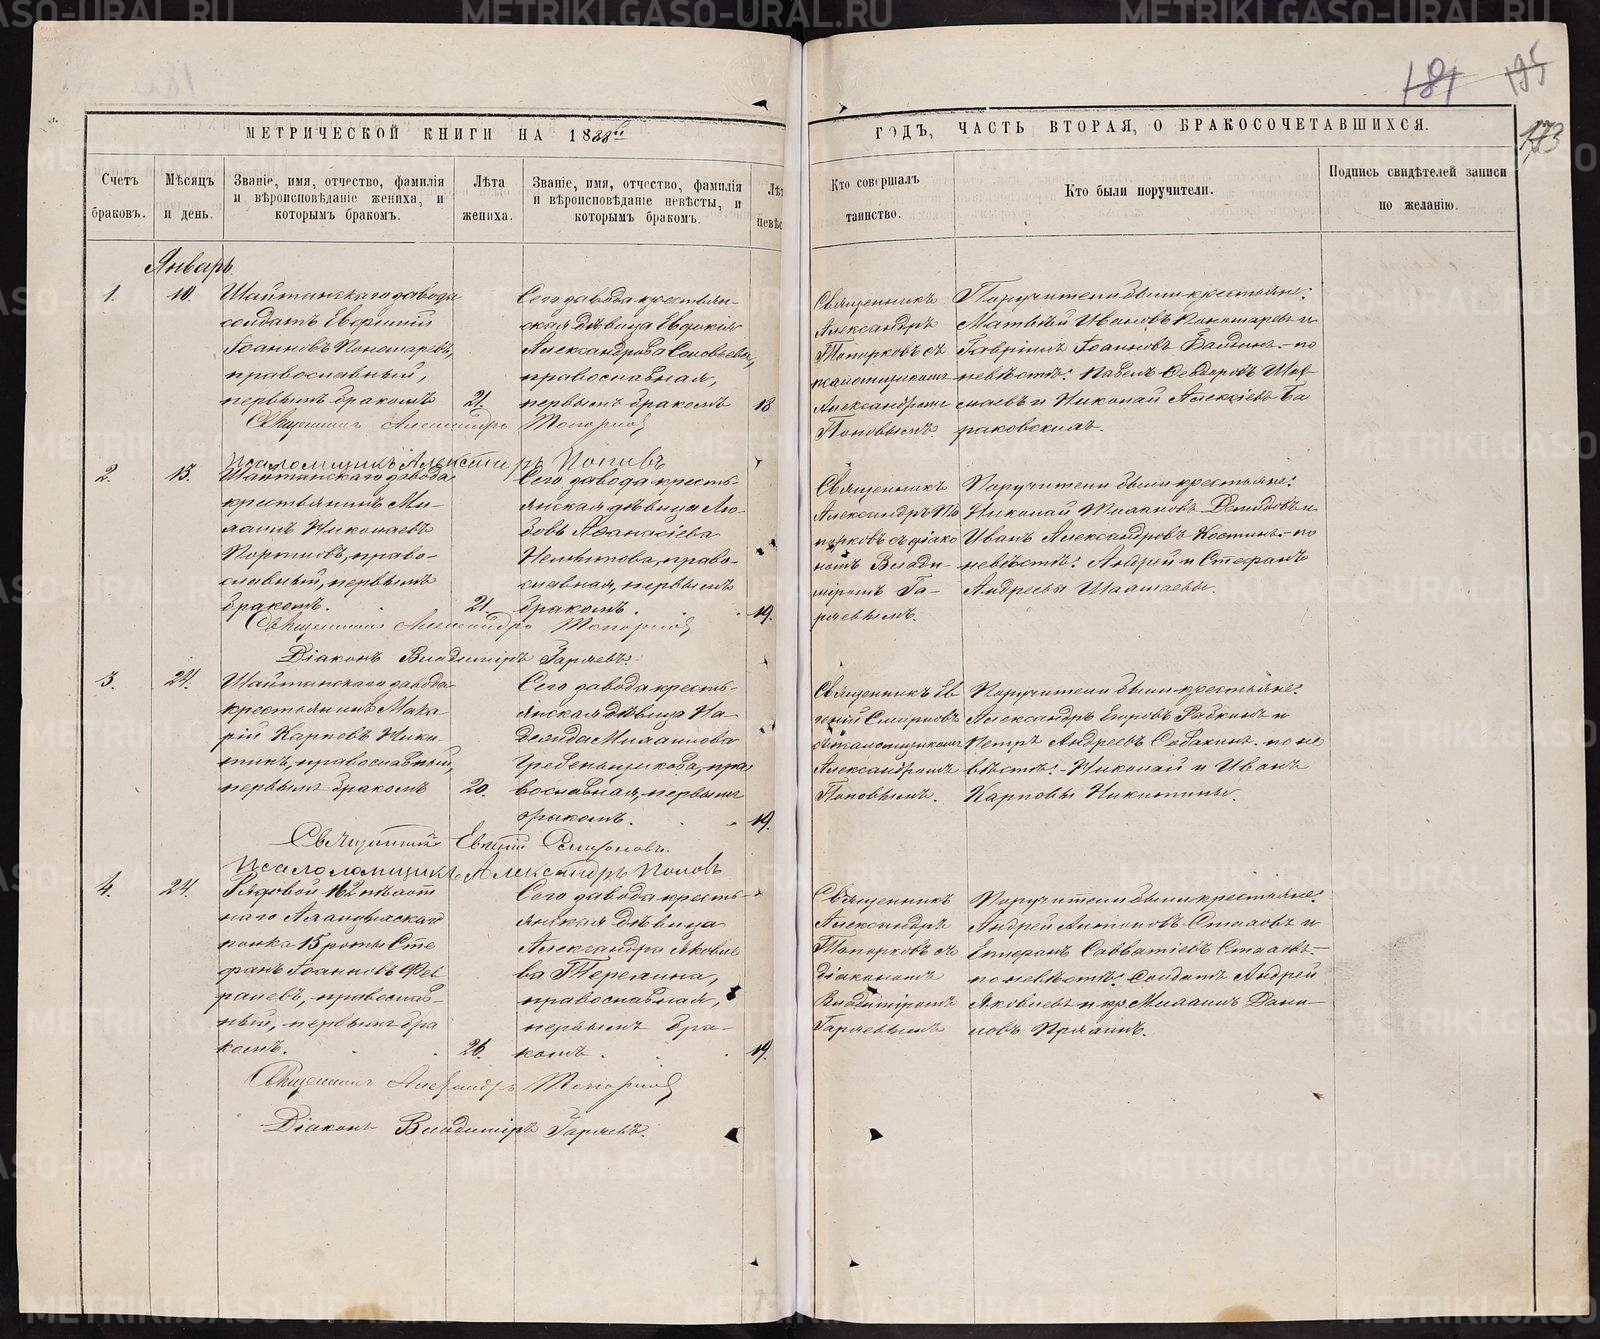 181 195
173
МЕТРИЧЕСКОЙ КНИГИ НА 1888й
ГОДЪ, ЧАСТЬ ВТОРАЯ, О БРАКОСОЧЕТАВШИХСЯ.
Счетъ браковъ.
Мѣсяцъ и день.
Званіе, имя, отчество, фамилія
и вѣроисповѣданіе жениха, и
которымъ бракомъ.
Лѣта жениха.
Званіе, имя, отчество, фамилія
и вѣроисповѣданіе невѣсты, и
которымъ бракомъ.
Кто совершалъ
таинство.
Кто были поручители.
Подпись свидѣтелей записи
по желанію.
Январь
1. 10.
Шайтанскаго завода
солдатъ Евфимій
Іоанновъ Пономаревъ,
православный,
первымъ бракомъ 21.
Сего завода крестьян-
ская дѣвица Евдокія
Александрова Соловьева,
православная,
первымъ бракомъ 18
Священникъ
Александръ
Топорковъ съ
псаломщикомъ
Александромъ
Поповымъ.
Поручители были крестьяне:
Матвѣй Ивановъ Пономаревъ и
Гавріилъ Іоанновъ – по
невѣстѣ: Павелъ Ѳедоровъ
и Николай Алексѣевъ Ба
раковскихъ.
Священникъ Александръ Топорковъ
Псаломщикъ Александръ Поповъ
2. 13.
Шайтанскаго завода
крестьянинъ Ми-
хаилъ Николаевъ
право-
славный, первымъ
бракомъ. 21.
Сего завода кресть-
янская дѣвица Лю-
бовь Аѳанасіева
право-
славная, первымъ
бракомъ. 19.
Священникъ
Александръ То
порковъ съ діако
номъ Влади-
міромъ Га-
ряевымъ.
Поручители были крестьяне:
Николай Демидовъ и
Иванъ Александровъ Костинъ – по
невѣстѣ: Андрей и Стефанъ
Андреевы
Священникъ Александръ Топорковъ
Діаконъ Владиміръ Гаряевъ.
3. 24.
Шайтанскаго завода
крестьянинъ Мака
рій Карповъ Ники
тинъ, православный,
первымъ бракомъ 20.
Сего завода кресть-
янская дѣвица На
дежда Михаилова
Гребеньщикова, пра
вославная, первымъ
бракомъ. 19.
Священникъ Ев
геній Смирновъ
съ псаломщикомъ
Александромъ
Поповымъ.
Поручители были крестьяне:
Александръ Егоровъ Рябкинъ и
Петръ Андреевъ Собакинъ – по не
вѣстѣ: – Николай и Иванъ
Карповы Никитины.
Священникъ Евгеній Смирновъ.
Псаломщикъ Александръ Поповъ
4. 24.
Рядовой 162 пѣхот
наго Ахалцыхскаго
полка 15 роты Сте
фанъ Іоанновъ
православ-
ный, первымъ бра
комъ. 26.
Сего завода кресть-
янская дѣвица
Александра Яковле
ва Терехина,
православная,
первымъ бра-
комъ. 19.
Священникъ
Александръ
Топорковъ съ
діакономъ
Владиміромъ
Гаряевымъ
Поручители были крестьяне:
Андрей Антоновъ Стаховъ и
Савватіевъ Стаховъ –
по невѣстѣ: Солдатъ Андрей
Яковлевъ и кр. Михаилъ Дани-
ловъ Пряхинъ.
Священникъ Александръ Топорковъ
Діаконъ Владиміръ Гаряевъ.
METRIKI.GASO-URAL.RU